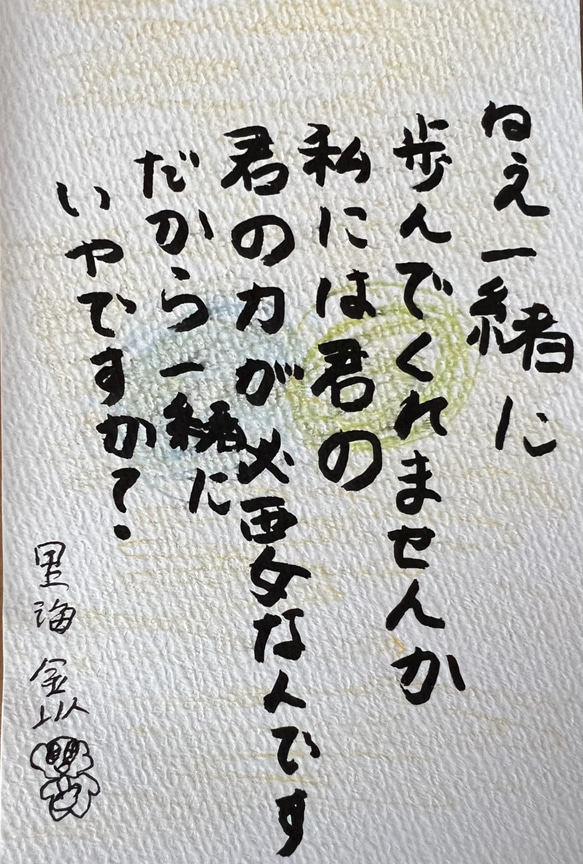 ねえ一緒に
歩んでくれませんか
私には君の
君の力が必要なんです
だから一緒に
いやですか?
里海